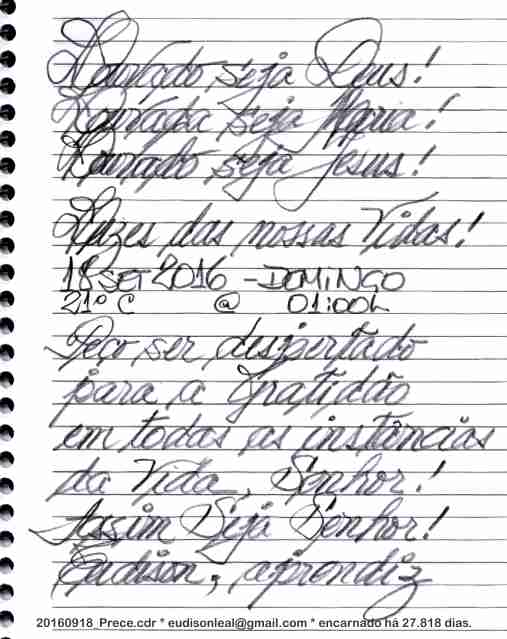 Louvado seja Deus!
Louvada seja Maria!
Louvado seja Jesus!
Luzes das nossas Vidas!
18 SET 2016 - DOMINGO
21º C @ 01:00h
Peço ser despertado
para a Gratidão
em todas as instâncias
da Vida, Senhor!
Assim Seja Senhor!
Eudison, aprendiz
20160918_Prece.cdr * eudisonleal@gmail.com * encarnado há 27.818 dias.